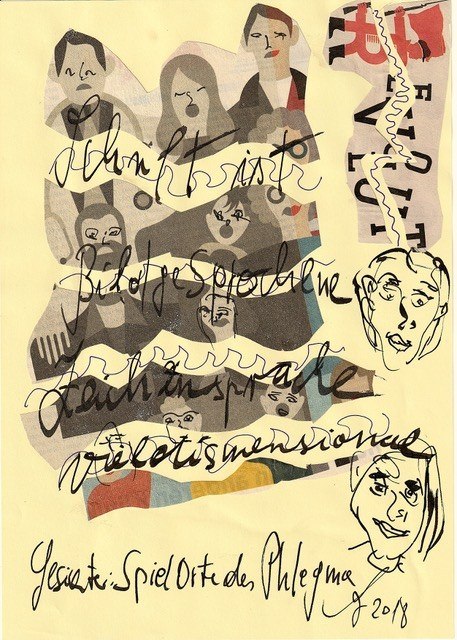 Schrift ist
Bild gesprochene
Zeichensprache
vieldimensional
Gesichter: SpielOrte des Phlegma
2018